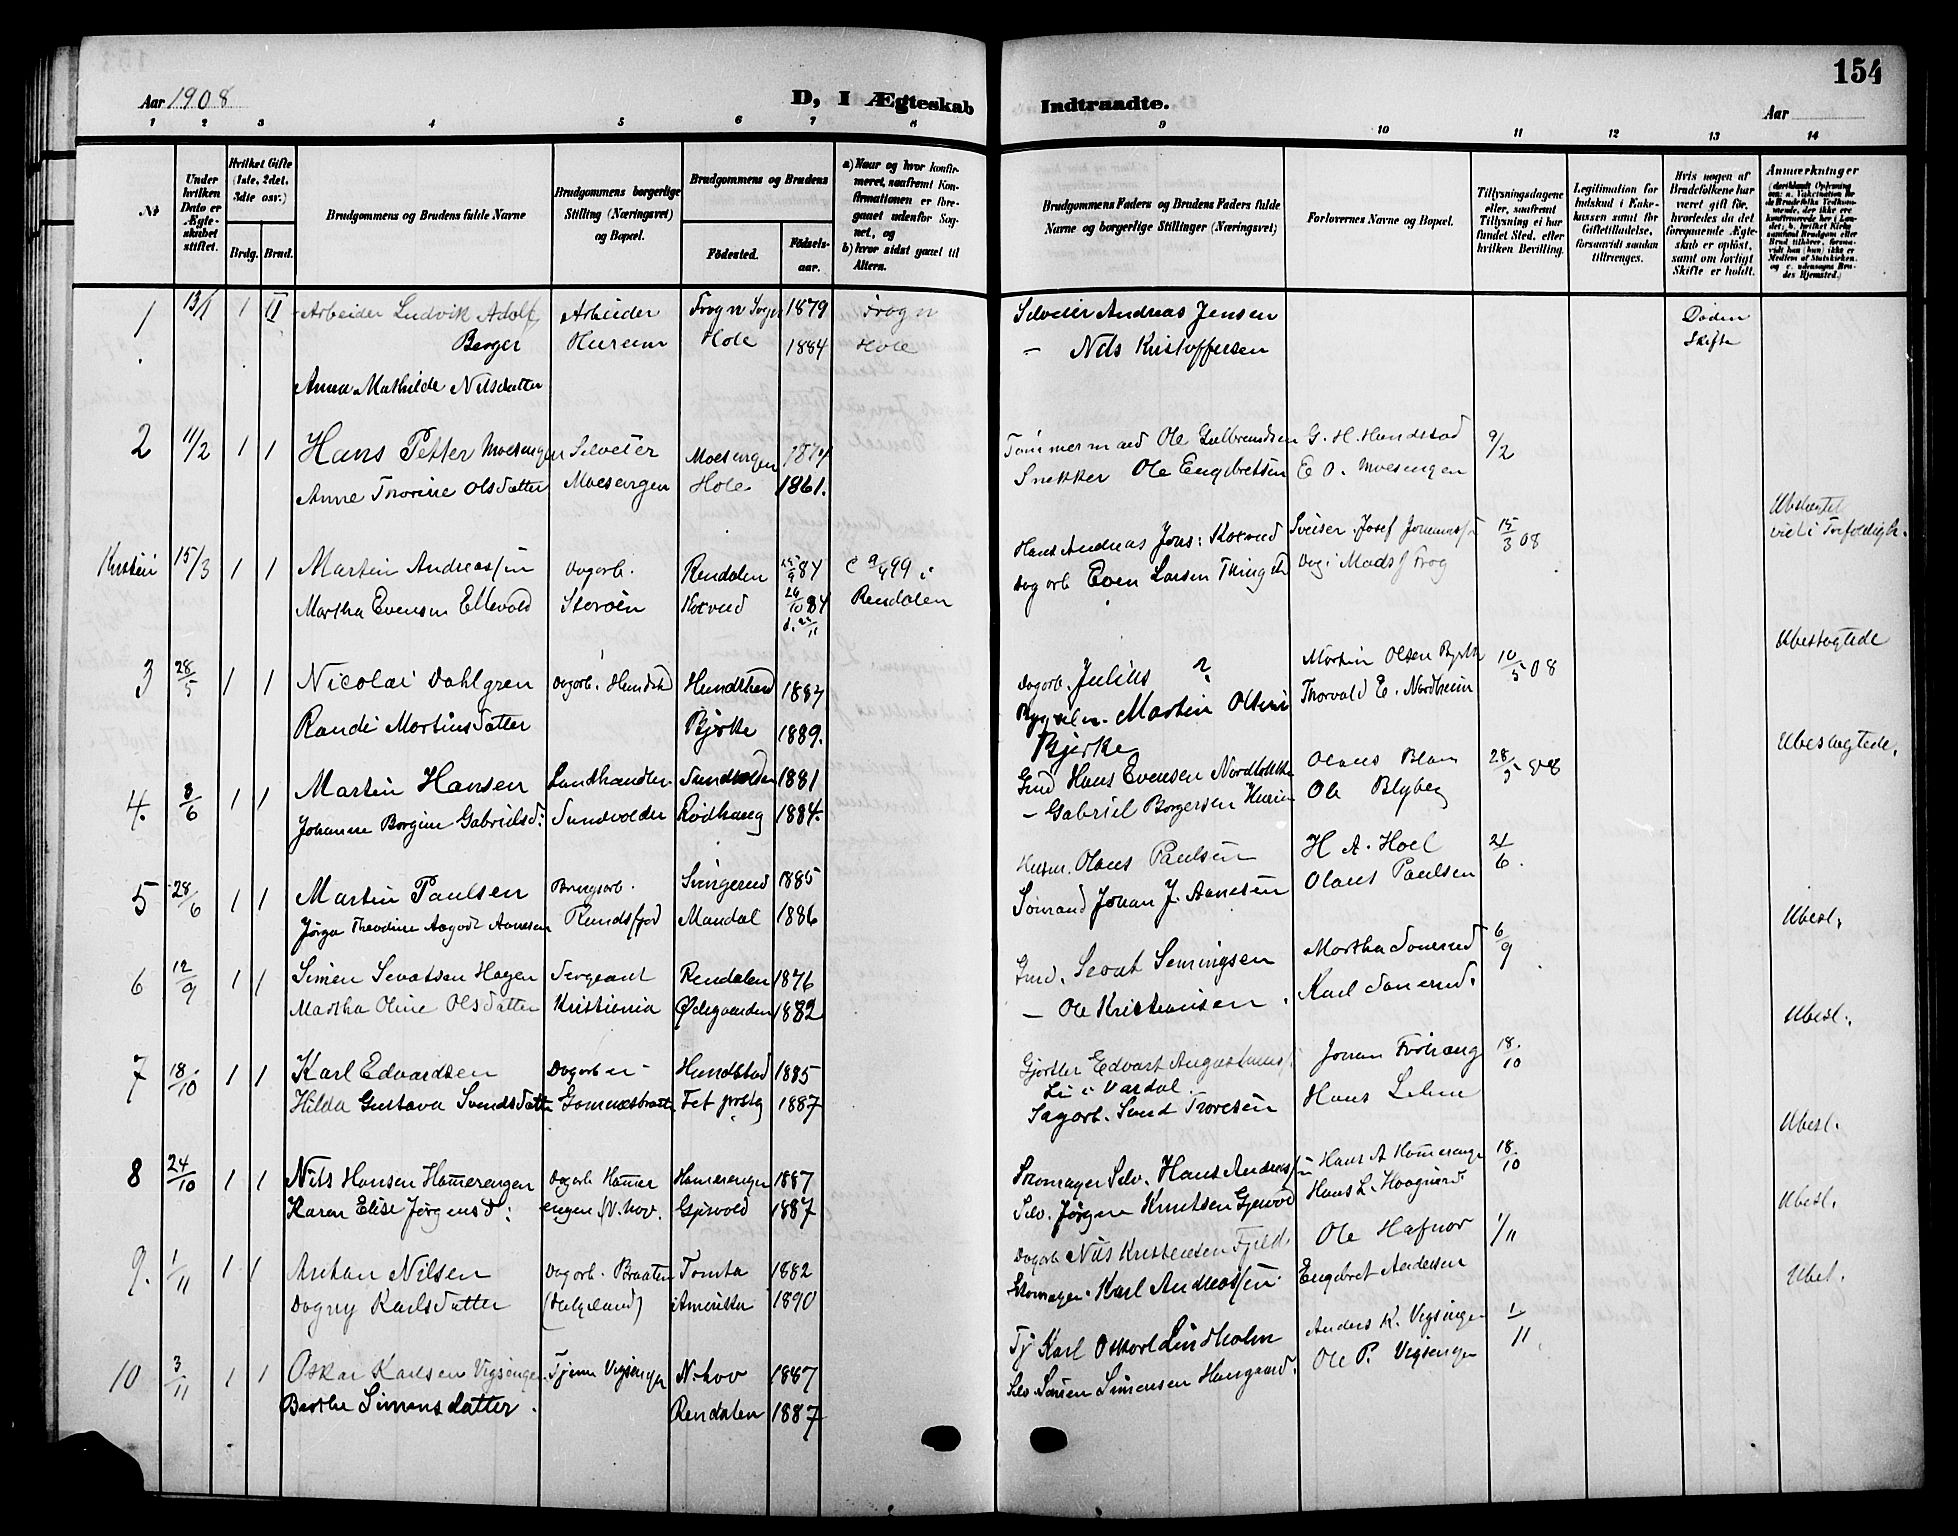 154
Aar 1908
D, I Ægteskab Indtraadte.
Aar
1 2 3 4 5 6 7 8 9 10 11 12 13 14
№
Under hvilken Dato er Ægteskabet stiftet.
Hvilket Gifte (1ste, 2det, 3die osv.)
Brdg. Brud.
Brudgommens og Brudens fulde Navne
Brudgommens borgerlige Stilling (Næringsvei) og Bopæl.
Brudgommens og Brudens
Fødested.
Fødselsaar.
a) Naar og hvor konfirmeret, saafremt Konfirmationen er foregaaet udenfor Sognet, og
b) hvor sidst gaaet til Alters.
Brudgommens Faders og Brudens Faders fulde Navne og borgerlige Stillinger (Næringsvei)
Forlovernes Navne og Bopæl.
Tillysningsdagene eller, saafremt Tillysning ei har fundet Sted, efter hvilken Bevilling.
Legitimation for Indskud i Enkekassen samt for Giftetilladelse, forsaavidt saadan tiltrænges.
Hvis nogen af Brudefolkene har været gift før, hvorledes da det foregaaende Ægteskab er opløst, samt om lovligt Skifte er holdt.
Anmærkninger
1 13/1 1 II Arbeider Ludvik Adolf Arbeider Frogn Sogn 1879 Frogn Selveier Andreas Jensen Døden
Berger Hurum Hole 1884 Hole — Nils Kristoffersen Skifte
Anna Mathilde Nilsdatter
2 11/2 1 1 Hans Petter Moesengen Selveier Moesengen 1874 Tømmermand Ole Gulbrandsen G. H. Hundstad 9/2
Anne Thorine Olsdatter Moesengen Hole 1861. Snekker Ole Engebretsen E O. Moesengen
15/3 1 1 Martin Andreassen Dagarb. Rendalen 84 99 i Hans Andreas Jons: Sveiser Josef 15/3 08 Ubeslægtet
Martha Evensen Ellevold Storøen 26/10 84 Rendalen Dagarb Even Larsen viet i Trefoldigh.
3 28/5 1 1 Nicolai Dahlgren Dagarb. Hundstad Hundstad 1884 Dagarb. Julius ? Martin Olsen 10/5 08 Ubeslægtede
Randi Martinsdatter Bjerke 1889. Martin Olsen Thorvald E. Nordheim
Bjerke
4. 3/6 1 1 Martin Hansen Landhandler Sundvolden 1881 Grd Hans Evensen Olaus 28/5 08 Ubeslægtede.
Johanne Borgine Gabrielsd: Sundvolden Rødhaug 1884. — Gabriel Borgersen Ole Blyberg
5 28/6 1 1 Martin Paulsen Svingerud 1885 Husm. Olaus Paulsen H A. Hoel 21/6. Ubesl.
Jørga Theodine Aagodt Aanesen Mandal 1886 Sømand Johan J. Aanesen Olaus Paulsen
6 12/9 1 1 Simen Sevatsen Hagen Sergeant Rendalen 1876 Grd. Sevat Semingsen Martha Sonerud 6/9 Ubesl.
Martha Oline Olsdatter Kristiania Ødegaarden 1882 — Ole Kristiansen. Karl Sonerud.
7 18/10 1 1 Karl Edvardsen Dagarb Hundstad 1885 Gjørtler Edvart 18/10 Ubesl.
Li i Vardal.
Hilda Gustava Svendsdatter Fet 1887 Sagarb. Svend Toresen Hans Lehn
8 24/10 1 1 Nils Hansen Hamerengen Dagarb Hamer Hamerengen 1887 Skomager Selv. Hans Andreassen Hans A Hamerengen 18/10 Ubesl.
Karen Elise Jørgensd: engen N. hov. Gjesvold 1887 Selv. Jørgen Knutsen Gjesvold Hans L.
9. 1/11 1 1 Anton Nilsen Dagarb. Braaten Tomta 1882 Dagarb Nils Kristensen Fjeld Ole Hafnor 1/11 Ubesl.
Dagny Karlsdatter (Helgeland) Amerika 1890 Skomager. Karl Andreassen. Engebret Andersen
10 3/11 1 1 Oskar Karlsen Vigsengen Tjener Vigsengen N. hov 1887 Tj Karl Oskar Lindholm Anders K. Vigsengen 1/11
Berthe Simensdatter. Rendalen 1887 Selv. Simen Simensen Haugaard. Ole P. Vigsengen